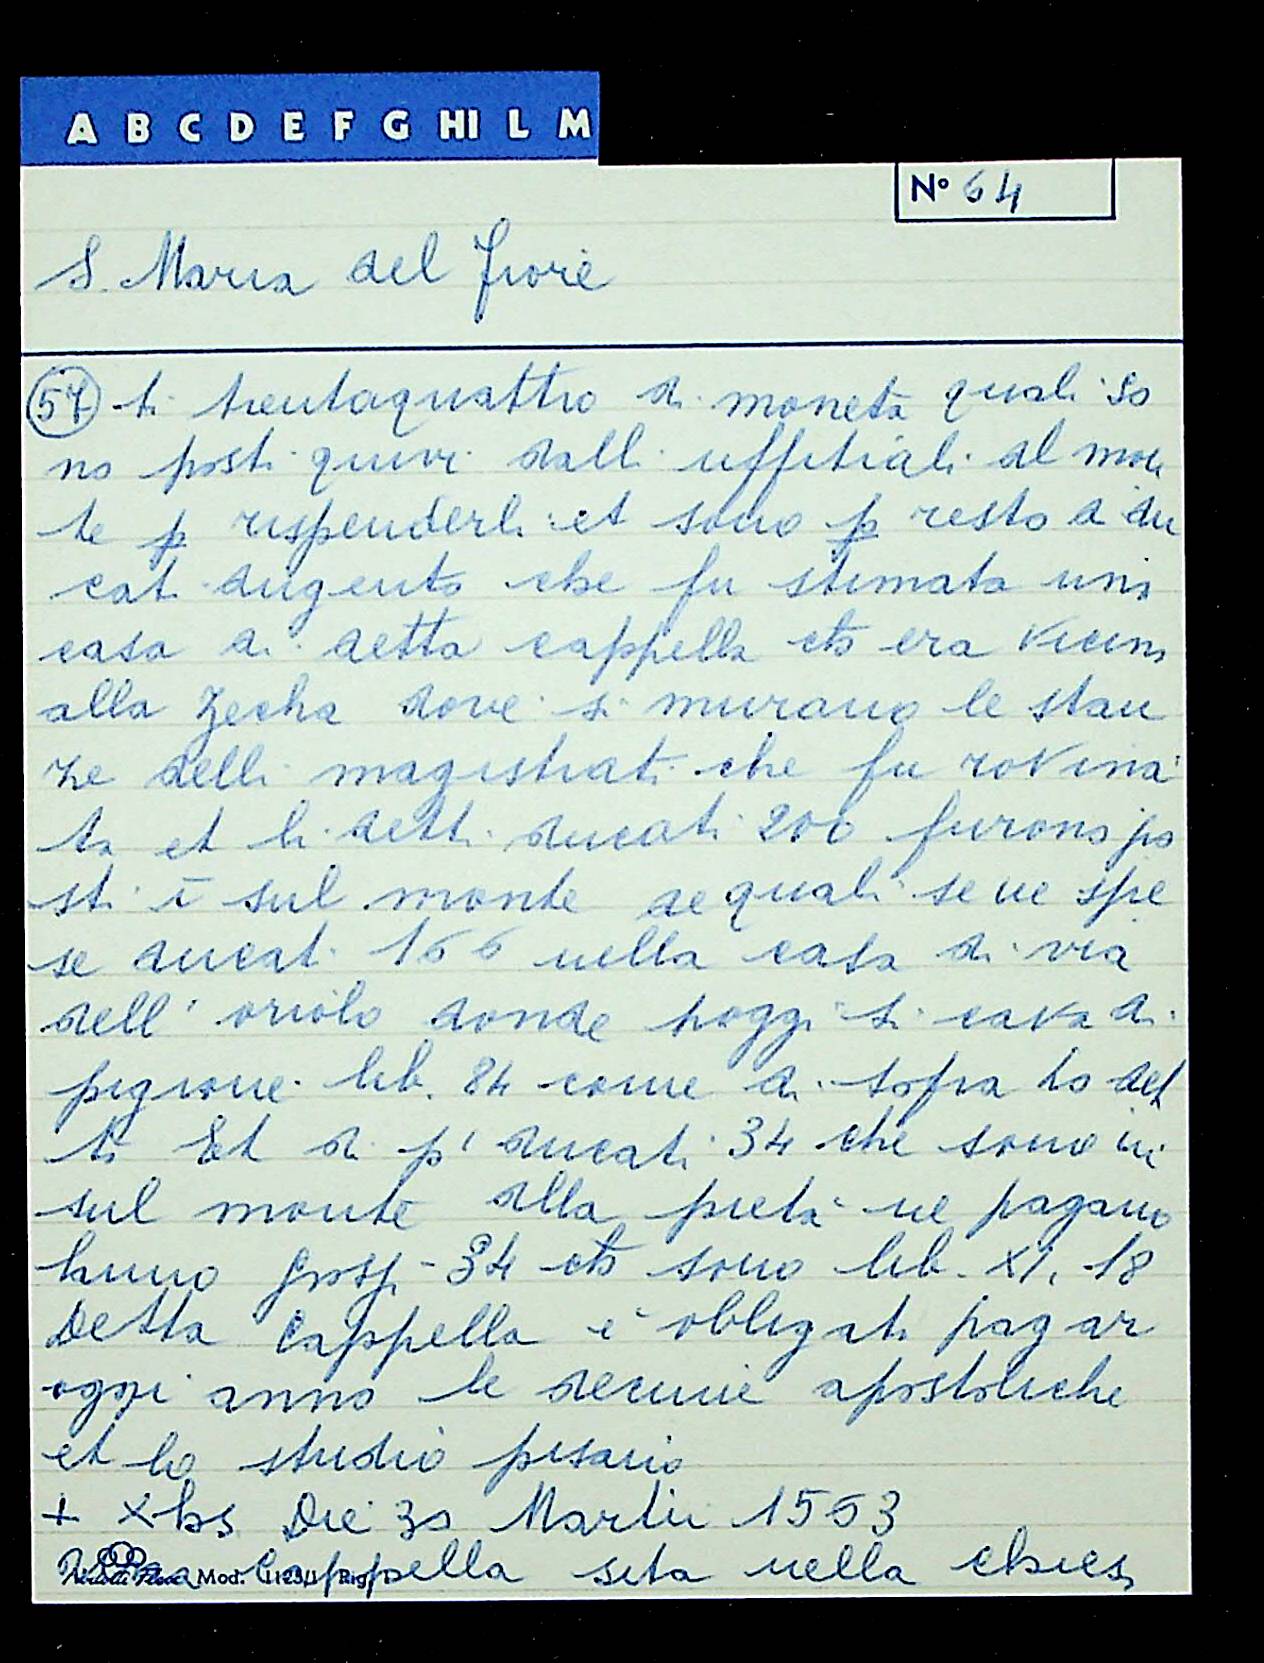 A B C D E F G HI L M
Nº 64
S. Maria del fiore
57 ti trentaquattro di moneta quali so
no posti quivi dalli uffitiali del mon
te p rispenderli et sono p resto di du
cati dugento che fu stimata una
casa di detta cappella ch era vicina
alla zecha dove si murano le stan
ze delli magistrati che fu rovina
ta et li detti ducati 200 furono po
sti ī sul monte de quali se ne spe
se ducati 166 nella casa di via
dell' oriolo donde hoggi si cava di
pigione lib. 84 come di sopra ho det
to Et di p' ducati 34 che sono in
sul monte della pietà ne pagano
lanno grossi 34 ch sono lib. XI, 18
Detta Cappella è obligata pagar
ogni anno le decime apostoliche
et lo studio pisano
+ Xhs Die 30 Martii 1563
Cappella sita nella chiesa
Mod. Rig.